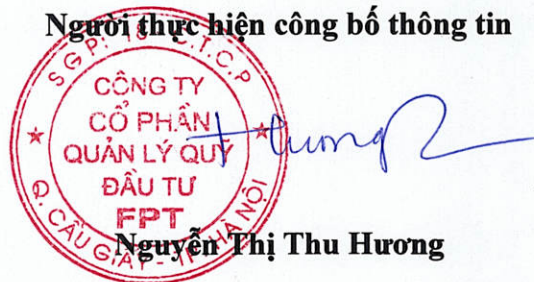 Người thực hiện công bố thông tin
CÔNG TY
CỔ PHẦN
QUẢN LÝ QUỸ
ĐẦU TƯ
FPT
Q. CẦU GIẤY - TP HÀ NỘI
Hương
Nguyễn Thị Thu Hương